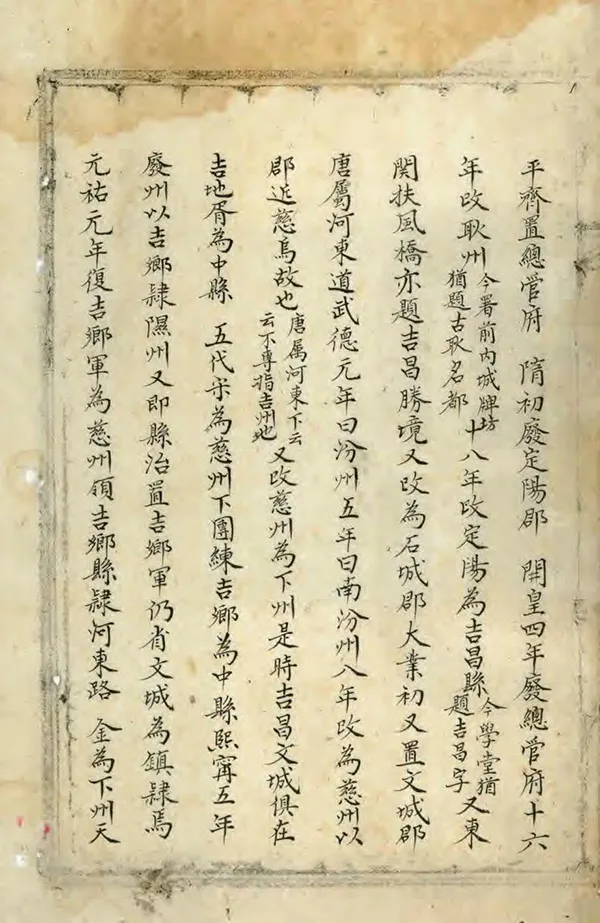 平齊置總管府　隋初廢定陽郡　開皇四年廢總管府十六
年改耿州今署前内城牌坊猶題古耿名都十八年改定陽為吉昌縣今學堂猶題吉昌字又東
関扶風橋亦題吉昌勝境又改為石城郡大業初又置文城郡
唐屬河東道武德元年曰汾州五年曰南汾州八年改為慈州以
郡近慈烏故也唐属河東下云云不專指吉州也又改慈州為下州是時吉昌文城俱在
吉地胥為中縣　五代宋為慈州下團練吉鄉為中縣熙寧五年
廢州以吉鄉隸隰州又即縣治置吉鄉軍仍省文城為鎮隸焉
元祐元年復吉鄉軍為慈州領吉鄉縣隸河東路　金為下州天